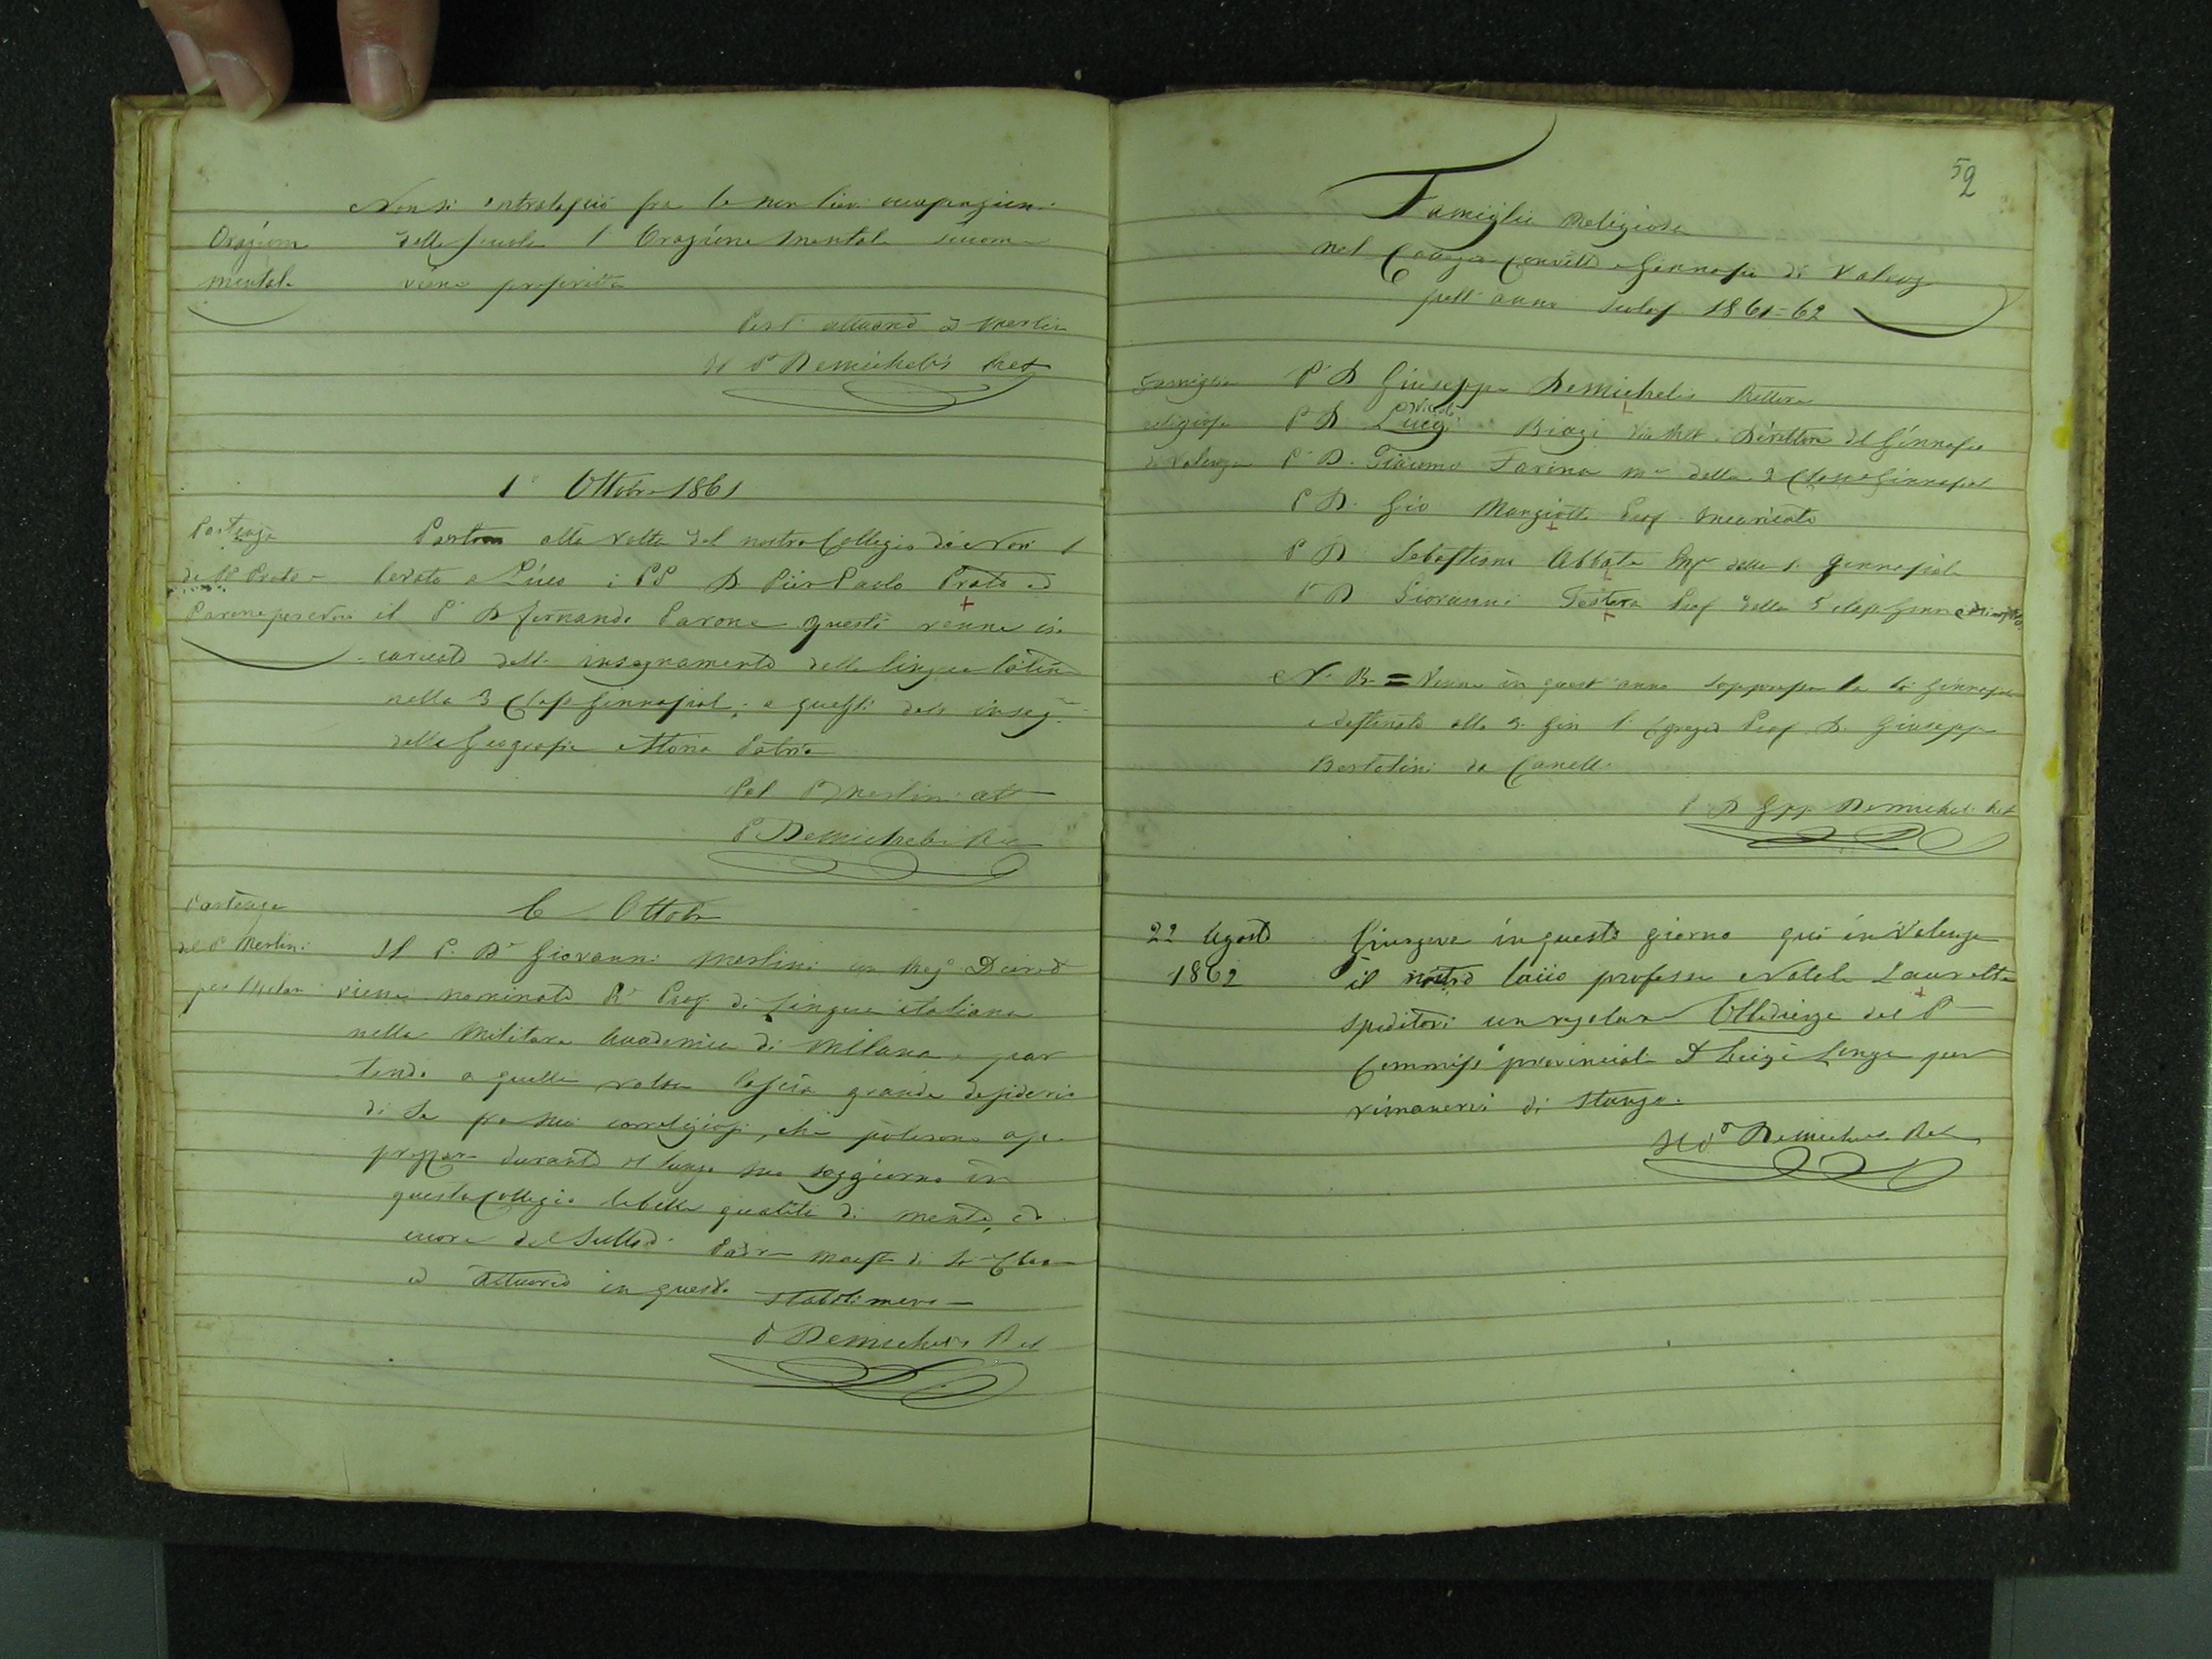 Non si intralasciò fra le non lievi occupazioni
Orazione
mentale
delle scuole l' Orazione mentale siccome
viene prescritta
Pel P. attuario D Merlini
Il P Demichelis Ret
1° Ottobre 1861
Partenza
de PP Prato e
Parone per Novi
Partono alla volta del nostro Collegio di Novi
i PP D. Pier Paolo Prato ed
il P. D Fernando Parone questi venne in
caricato dell' insegnamento della lingua latina
nella 3 Class Ginnasial. e quegli dell' inseg.
della Geografia e Storia Patria
Pel P Merlini att
P Demichelis Ret
Partenza
del P Merlini
per Milan
6 Ottobre
Il P. D. Giovanni Merlini con Reg° Decreto
viene nominato R° Prof. di lingua italiana
nella Militare Accademia di Milano e par
tendo a quella volta lascia grande desiderio
di se fra suoi correligiosi, che poterono ap
prezzare durante il lungo suo soggiorno in
questo Collegio le belle qualità di mente, ed
cuore del Sullod. Padre Maest. di 1a Classe
ed Attuario in questo Stabilimento
P Demichelis Ret
52
Famiglia Religiosa
nel Collegio Convitto e Ginnasio di Valenza
pell' anno scolas. 1861=62
Famiglia
religiosa
di Valenza
P. D Giuseppe Demichelis Rettore
P D. Luigi Nicolò Biagi Vice Ret. Direttore del Ginnasio
P. D. Giacomo Farina M° della 3 Classe Ginnasial
P D. Gio Mangiotti Prof. Incaricato
P D. Sebastiano Abbate M° della 1. Ginnasiale
P D Giovanni Testera Prof della 5 class Ginn
N. B. = Venne in quest' anno soppressa la 1a Ginnasiale
e destinato alla 3. Gin l' Egregio Prof D. Giuseppe
Bertolini da Canelli
P D Gpp. Demichelis Ret
22 Agosto
1862
Giungeva in questo giorno qui in Valenza
il nostro laico professo Natale Lauretta
speditovi con regolare Obbedienza del P
Commiss° provinciale D Luigi Longa per
rimanervi di stanza.
Il P° Demichelis Ret